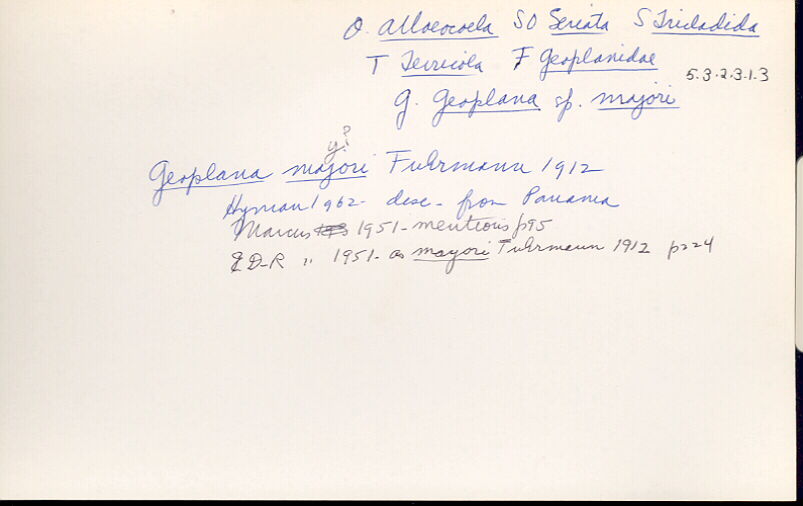 O. Alloeocoela SO Seriata S Tricladida
T Terricola F Geoplanidae
5.3.2.3.1.3
G. Geoplana sp. majori
y?
Geoplana majori Fuhrmann 1912
Hyman 1962- desc- from Panama
Marcus 1951- mentions p95
E D-R " 1951- as mayori Fuhrmann 1912 p224